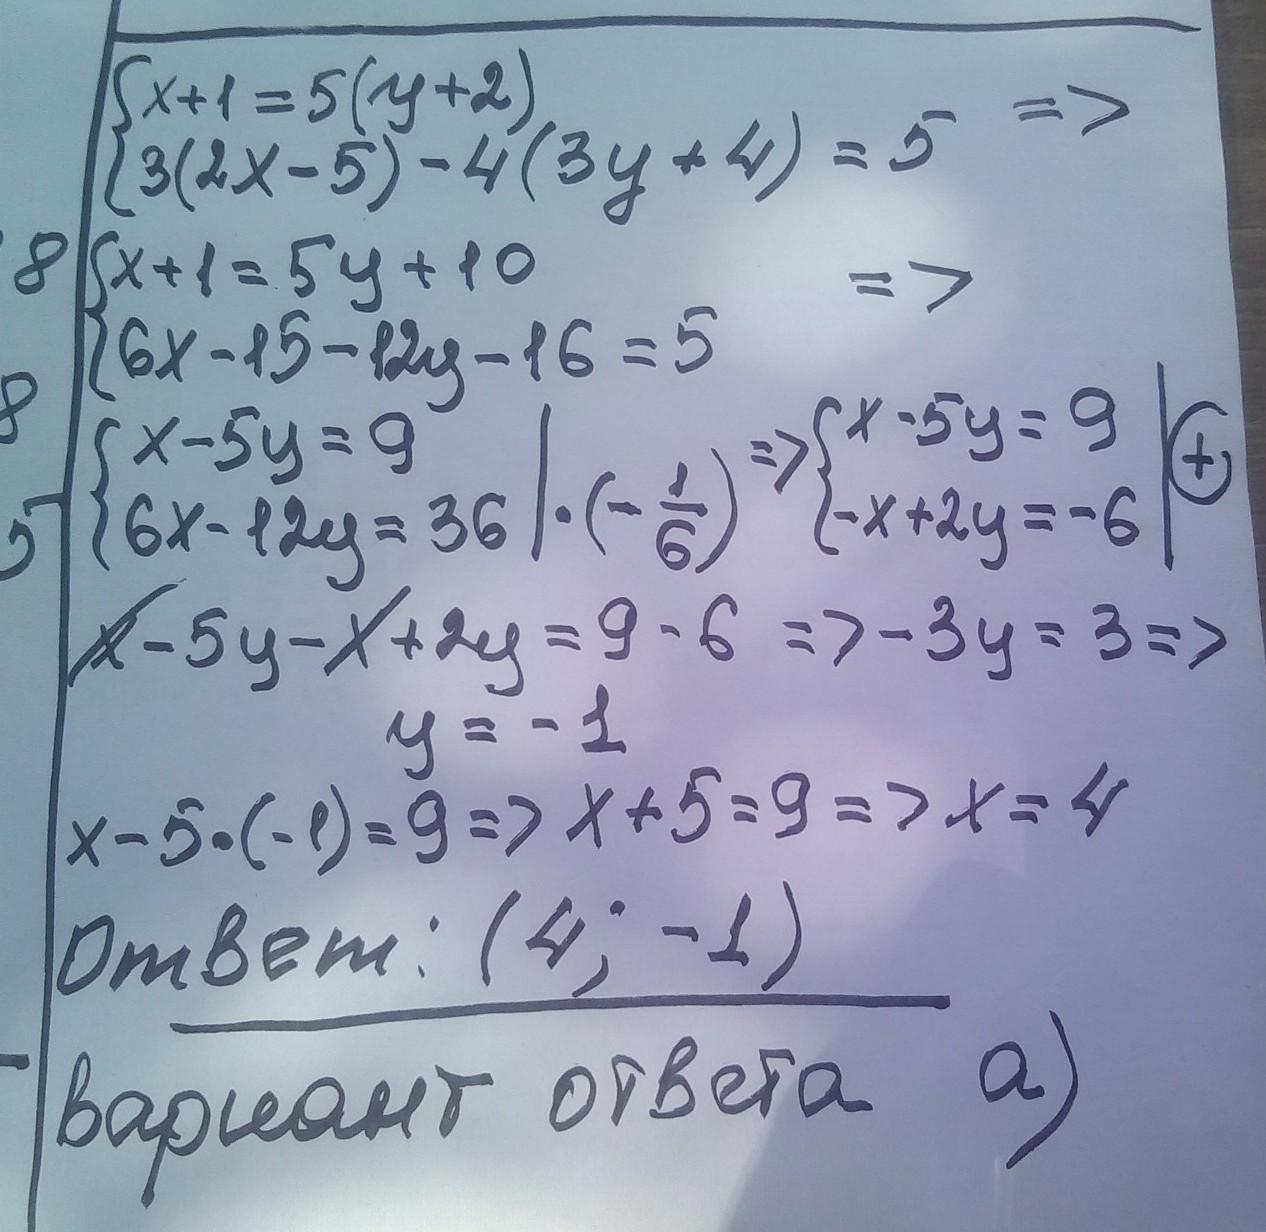 x+1=5(y+2)
3(2x-5)-4(3y+4)=5 =>
8
x+1=5y+10
6x-15-12y-16=5 =>
8
x-5y=9
6x-12y=36 |·(-1/6) => x-5y=9
-x+2y=-6 | (+)
5
x-5y-x+2y=9-6 => -3y=3 =>
y=-1
x-5·(-1)=9 => x+5=9 => x=4
Ответ: (4; -1)
вариант ответа а)